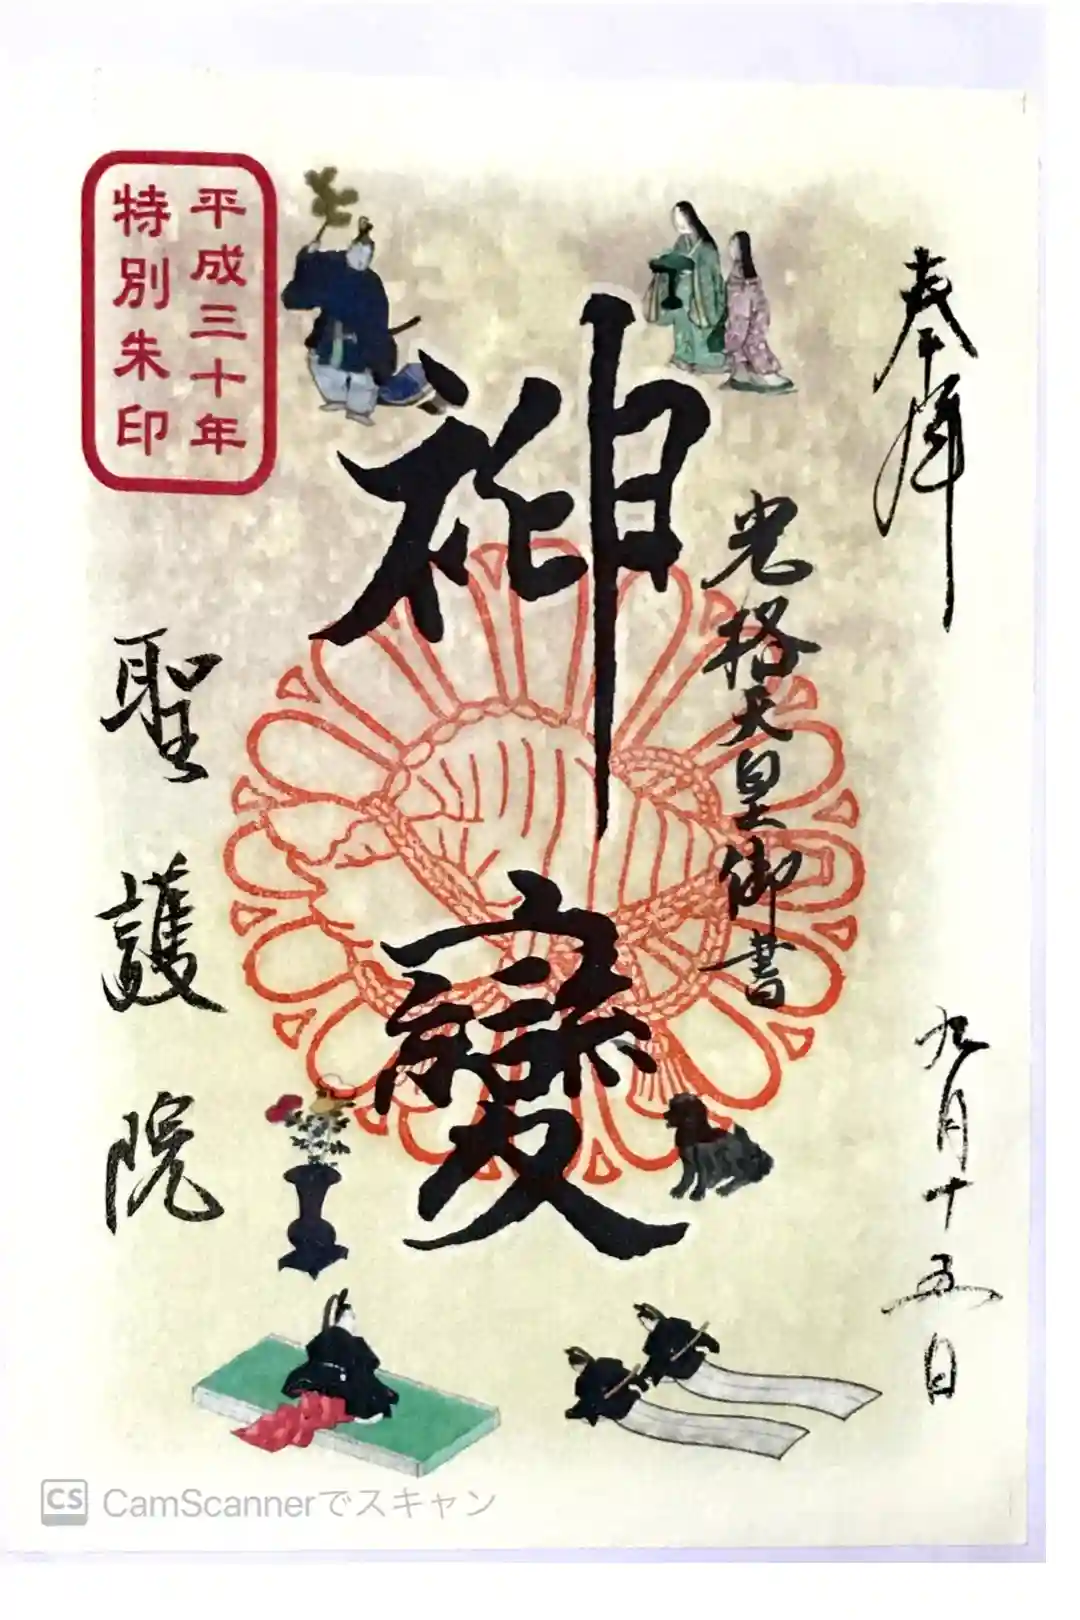 奉拝
九月十五日
光格天皇御書
神變
平成三十年
特別朱印
聖護院
CS CamScannerでスキャン